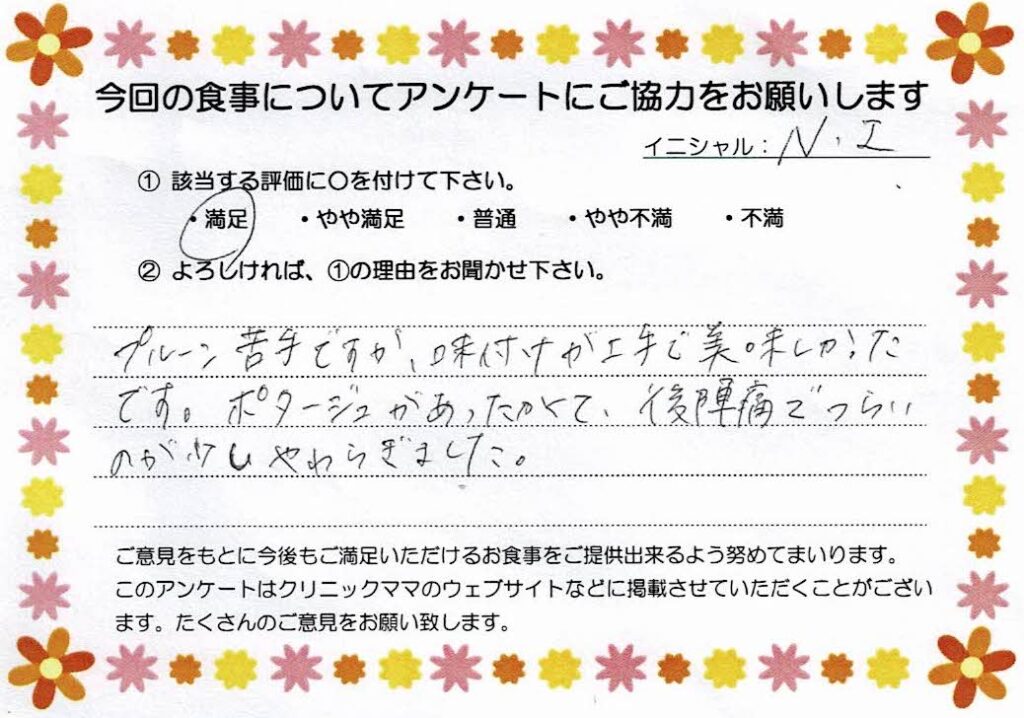 今回の食事についてアンケートにご協力をお願いします
イニシャル：N.I
① 該当する評価に〇を付けて下さい。
・満足 ・やや満足 ・普通 ・やや不満 ・不満
② よろしければ、①の理由をお聞かせ下さい。
プルーン苦手ですが、味付けが上手で美味しかった
です。ポタージュがあったかくて、後陣痛でつらい
のが少しやわらぎました。
ご意見をもとに今後もご満足いただけるお食事をご提供出来るよう努めてまいります。
このアンケートはクリニックママのウェブサイトなどに掲載させていただくことがござい
ます。たくさんのご意見をお願い致します。